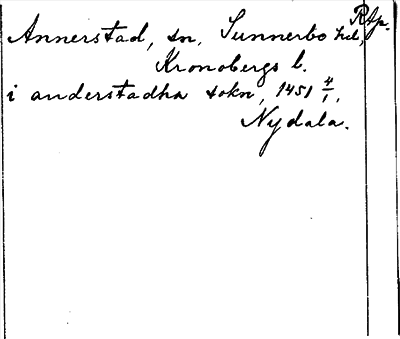 Rtp.
Annerstad, sn, Sunnerbo hd,
Kronobergs l.
i anderstadha sokn, 1451 4/1,
Nydala.